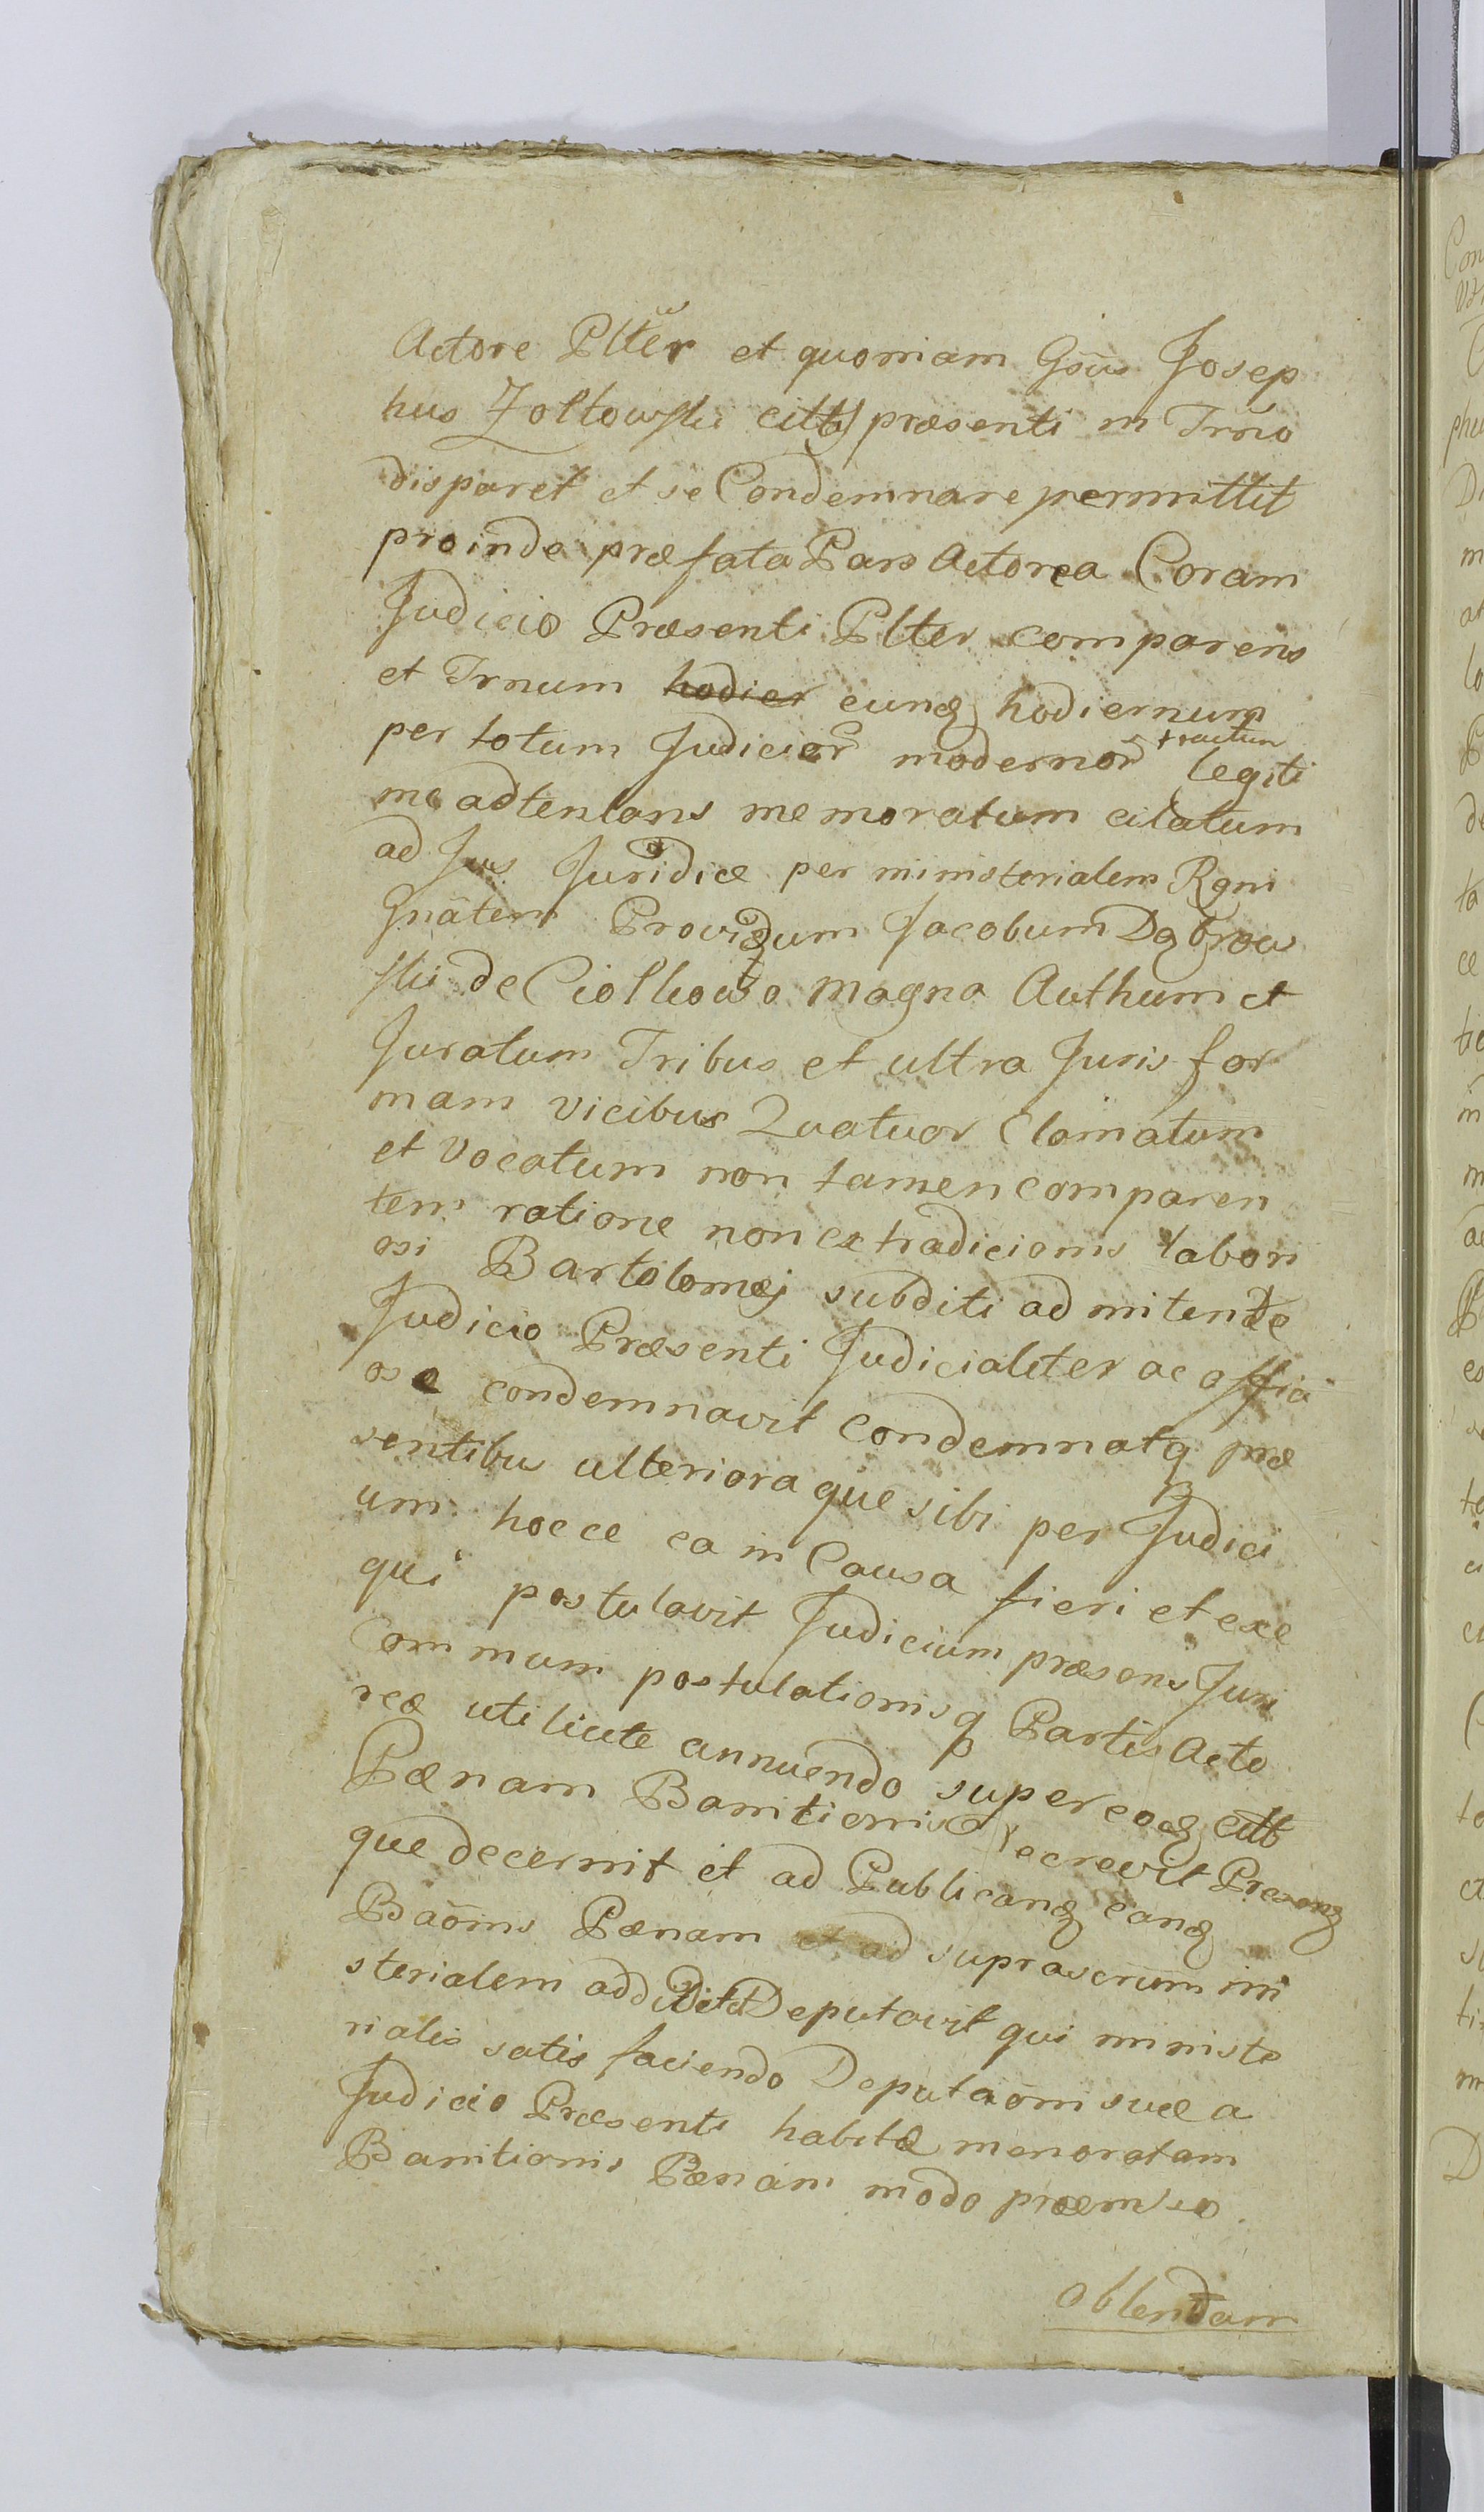 Actore Pltēr et quoniam Gsūs Josep
hus Zołtowski citt praesenti in Trn̄o
disparet et se Condemnare permittit
proinde praefata Pars Actorea Coram
Judicio Praesenti Plter comparens
et Trnum hodier eunq hodiernum
per totum Judicior modernor tractum legiti
me adtentans memoratum citatum
ad Jus Juridice per ministerialem Rgni
Gnātem Providum Jacobum Dąbrow
ski de Ciołkowo Magna Authum et
Juratum Tribus et ultra Juris for
mam vicibus Quatuor Clamatum
et Vocatum non tamen comparen
tem ratione non extradicionis labori
osi Bartolomęj subditi ad mitende
Judicio Praesenti Judicialiter ac offici
ose condemnavit Condemnatq prae
sentibus ulteriora que sibi per Judici
um hocce ea in Causa fieri et exe
qui postulavit Judicium praesens Juri
Communi postulationisq Partis Acto
reae utilicite annuendo super eoq citt
Paenam Banitionis Decrevit Praesenq
que decernit et ad Publicanq eanq
Baōnis Paenam et ad suprascrum mi
sterialem addidit Deputavit qui ministe
rialis satis faciendo Deputaōni suae a
Judicio Praesenti habitae memoratam
Banitionis Paenam modo praemisso
obtendam